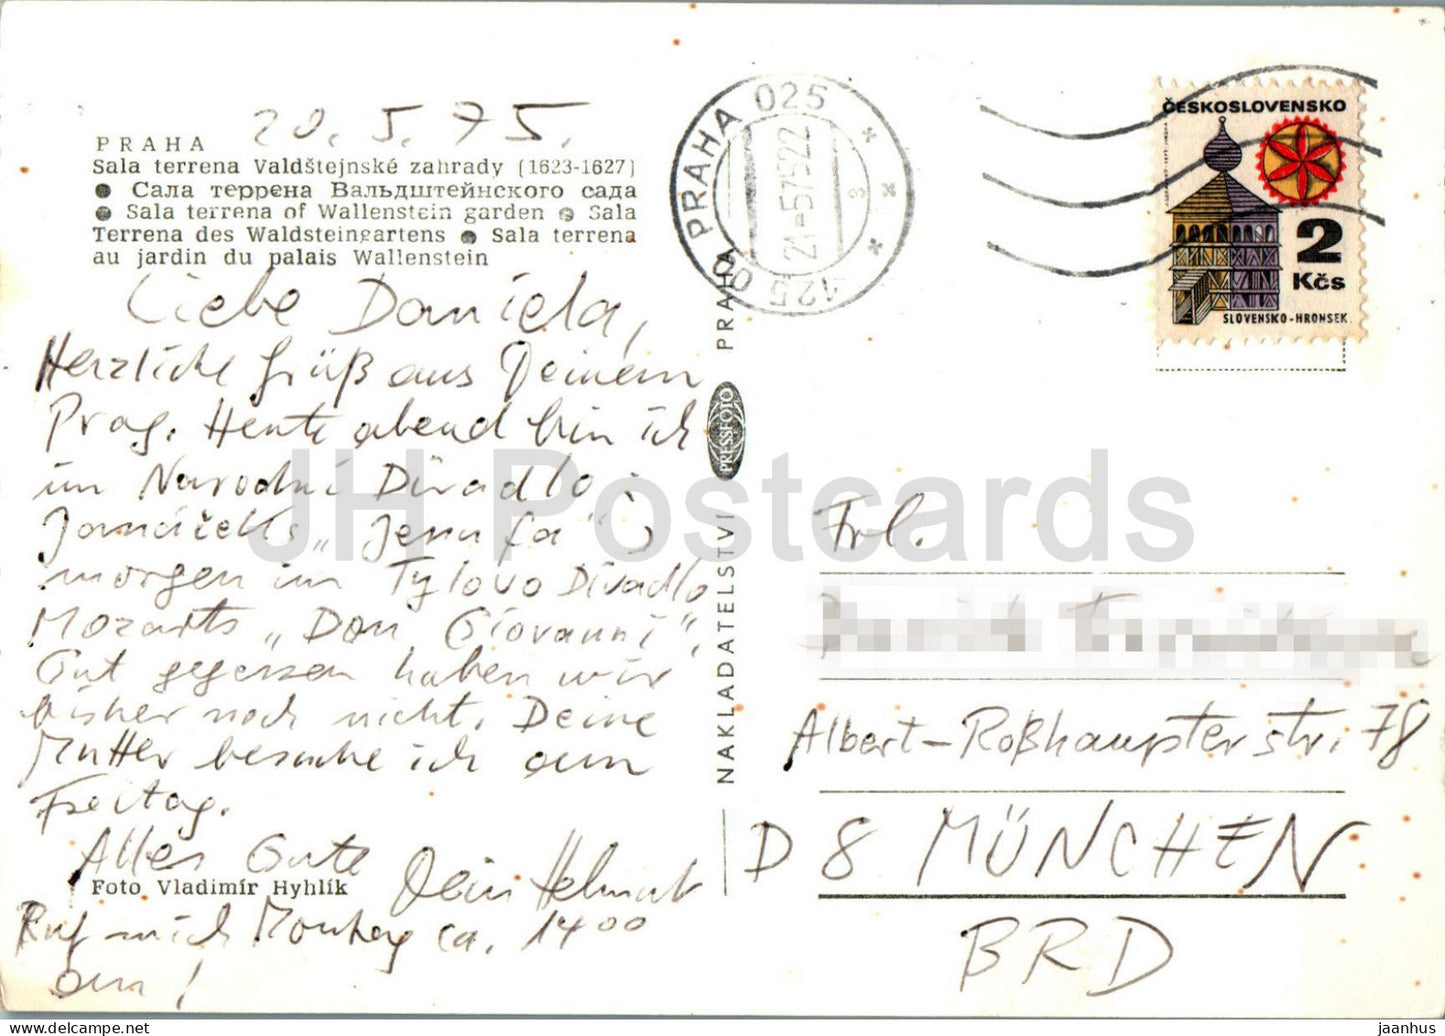 20. 5. 75.
PRAHA
Sala terrena Valdštejnské zahrady (1623-1627)
● Сала террена Вальдштейнского сада
● Sala terrena of Wallenstein garden ● Sala
Terrena des Waldsteingartens ● Sala terrena
au jardin du palais Wallenstein
Liebe Daniela,
Herzliche Grüß aus Deinem
Prag. Heute abend bin ich
im Narodni Divadlo:
Janáčeks „Jenufa";
morgen im Tylovo Divadlo
Mozarts „Don Giovanni",
Gut gegessen haben wir
bisher noch nicht. Deine
Mutter besuche ich am
Freitag.
Alles Gute
Dein Helmut
Foto Vladimír Hyhlík
Ruf mich Montag ca. 1400
an!
NAKLADATELSTVÍ PRESSFOTO PRAHA
PRAHA 025
125 00 PRAHA
21-5 75 22
ČESKOSLOVENSKO
2
Kčs
SLOVENSKO-HRONSEK
Frl.
Albert-Roßhaupterstr. 78
D 8 MÜNCHEN
BRD
JH Postcards
jaanhus